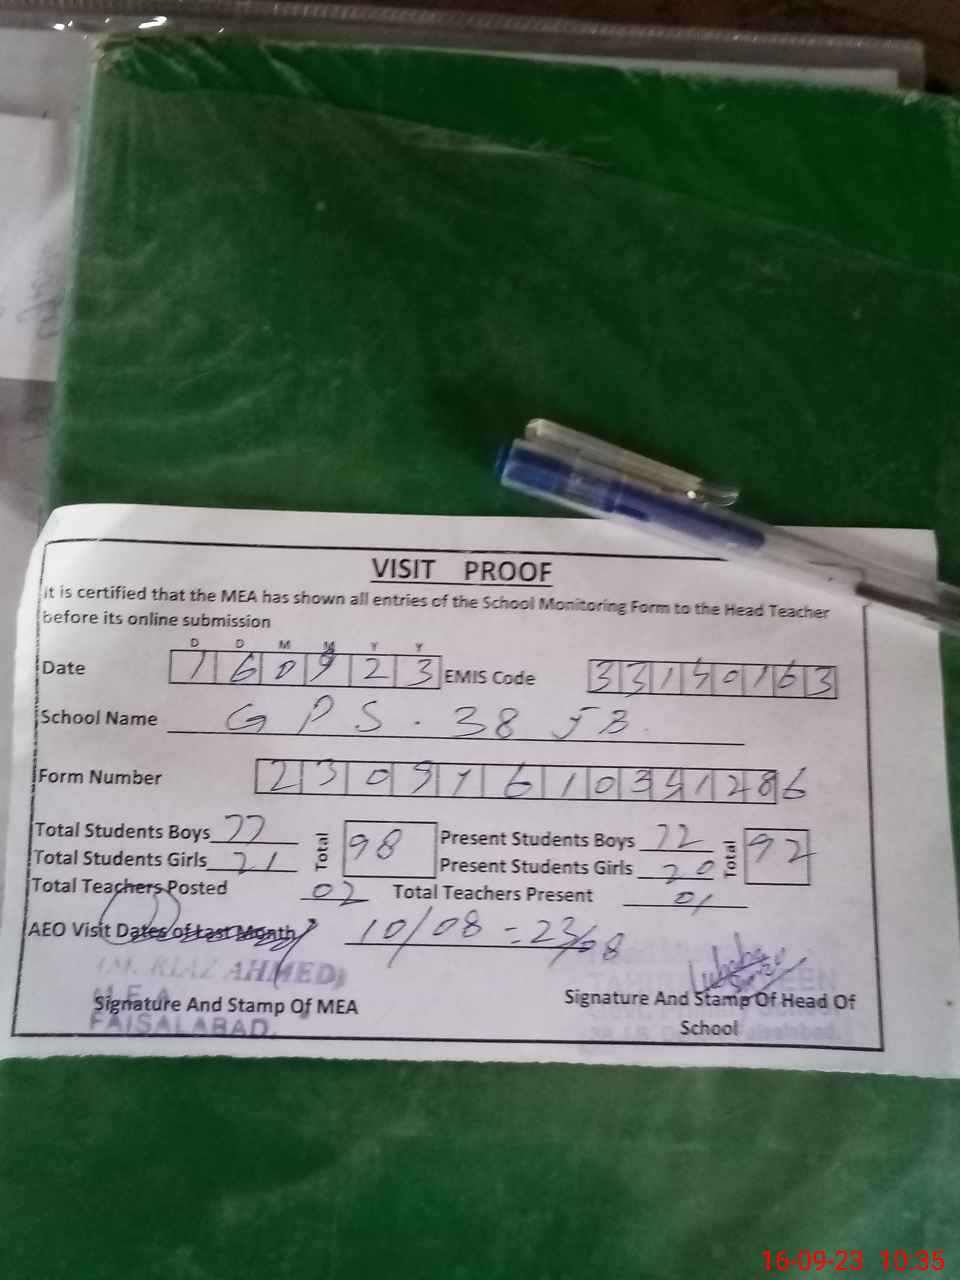 VISIT PROOF
it is certified that the MEA has shown all entries of the School Monitoring Form to the Head Teacher
before its online submission
D D M M Y Y
Date 160923 EMIS Code 33150163
School Name GPS. 38 JB.
Form Number 23091610341286
Total Students Boys 77 Total 98 Present Students Boys 72 Total 92
Total Students Girls 21 Present Students Girls 20
Total Teachers Posted 02 Total Teachers Present 01
AEO Visit Dates of Last Month 10/08 = 23/08
(M. RIAZ AHMED)
Signature And Stamp Of MEA Signature And Stamp Of Head Of
School
M.E.A
FAISALABAD.
16-09-23 10:35